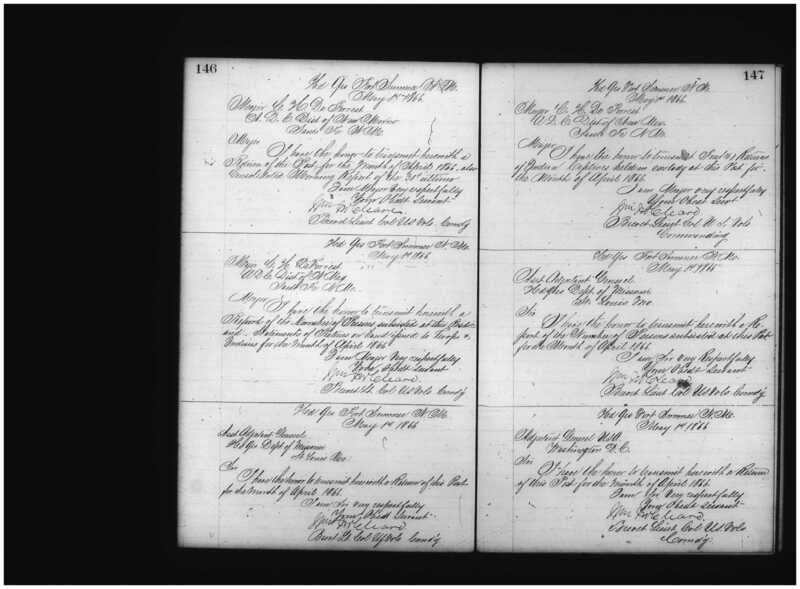 146
Hd Qrs Fort Sumner N. M.
May 1st 1866
Major C. H. De Forrest
A. D. C. Dist of New Mexico
Santa Fe N. M.
Major
I have the honor to transmit herewith a
Return of the Post for the Month of April 1866. also
Consolidated Morning Report of the 30th ultimo
I am Major Very respectfully
Your Obedt Servant
Wm McCleave
Brevet Lieut Col US Vols Comdg
Hd Qrs Fort Sumner N. M.
May 1st 1866
Major C. H. DeForrest
A. D. C. Dist of N Mex
Santa Fe N. M.
Major
I have the honor to transmit herewith a
Report of the Number of Persons subsisted at this Post
and Statements of Rations on hand issued to Troops &
Indians for the Month of April 1866
I am Major Very respectfully
Your Obedt Servant
Wm McCleave
Brevet Lt. Col US Vols Comdg
Hd Qrs Fort Sumner N. M.
May 1st 1866
Asst Adjutant General
Hd Qrs Dept of Missouri
St Louis Mo.
Sir
I have the honor to transmit herewith a Return of this Post
for the Month of April 1866.
I am Sir very respectfully
Your Obedt Servant
Wm McCleave
Brevt Lt Col US Vols Comdg
147
Hd Qrs Fort Sumner N. M.
May 1st 1866
Major C. H. De Forrest
A. D. C. Dist of New Mex.
Santa Fe N. M.
Major
I have the honor to transmit Returns
of Indian Captives held in custody at this Post for
the Month of April 1866
I am Major very respectfully
Your Obedt Servt
Wm McCleave
Brevet Lieut Col U. S. Vols
Commanding
Hd Qrs Fort Sumner N. M.
May 1st 1866
Asst Adjutant General
Hd Qrs Dept. of Missouri
St. Louis Mo.
Sir
I have the honor to transmit herewith a Re
port of the Number of Persons subsisted at this Post
for the Month of April 1866
I am Sir Very Respectfully
Your Obedt Servant
Wm McCleave
Brevet Lieut Col US Vols Comdg
Hd Qrs Fort Sumner N. M.
May 1st 1866
Adjutant General U.S.A.
Washington D.C.
Sir
I have the honor to transmit herewith a Return
of this Post for the Month of April 1866.
I am Sir Very respectfully
Your Obedt Servant
Wm McCleave
Brevet Lieut Col US Vols
Comdg